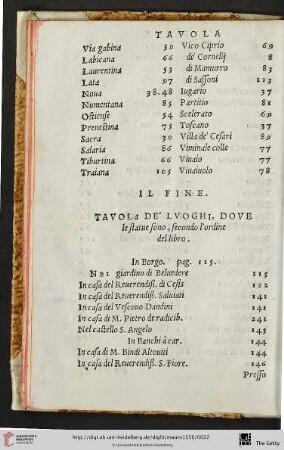 TAVOLA
Via gabina 50 Vico Ciprio 69
Labicana 66 de' Cornelij 8
Laurentina 53 di Mamurro 83
Lata 97 di Sassoni 113
Noua 38.48 Iugario 37
Numentana 85 Partitio 81
Ostiense 54 Scelerato 69
Prenestina 75 Toscano 37
Sacra 30 Villa de' Cesari 89
Salaria 86 Viminale colle 77
Tiburtina 66 Viuaio 77
Traiana 105 Viuaiuolo 78
IL FINE.
TAVOLA DE' LVOGHI, DOVE
le statue sono, secondo l'ordine
del libro.
In Borgo. pag. 115.
NEL giardino di Beluedere 115
In casa del Reuerendiss. di Cesis 122
In casa del Reuerendiss. Saluiati 141
In casa del Vescouo Dandini 141
In casa di M. Pietro de radicib. 241
Nel castello S. Angelo 143
In Banchi à car. 144
In casa di M. Bindi Altouiti 144
In casa del Reuerendiss. S. Fiore. 146
Presso
http://digi.ub.uni-heidelberg.de/diglit/mauro1556/0022
© Universitätsbibliothek Heidelberg
The Getty